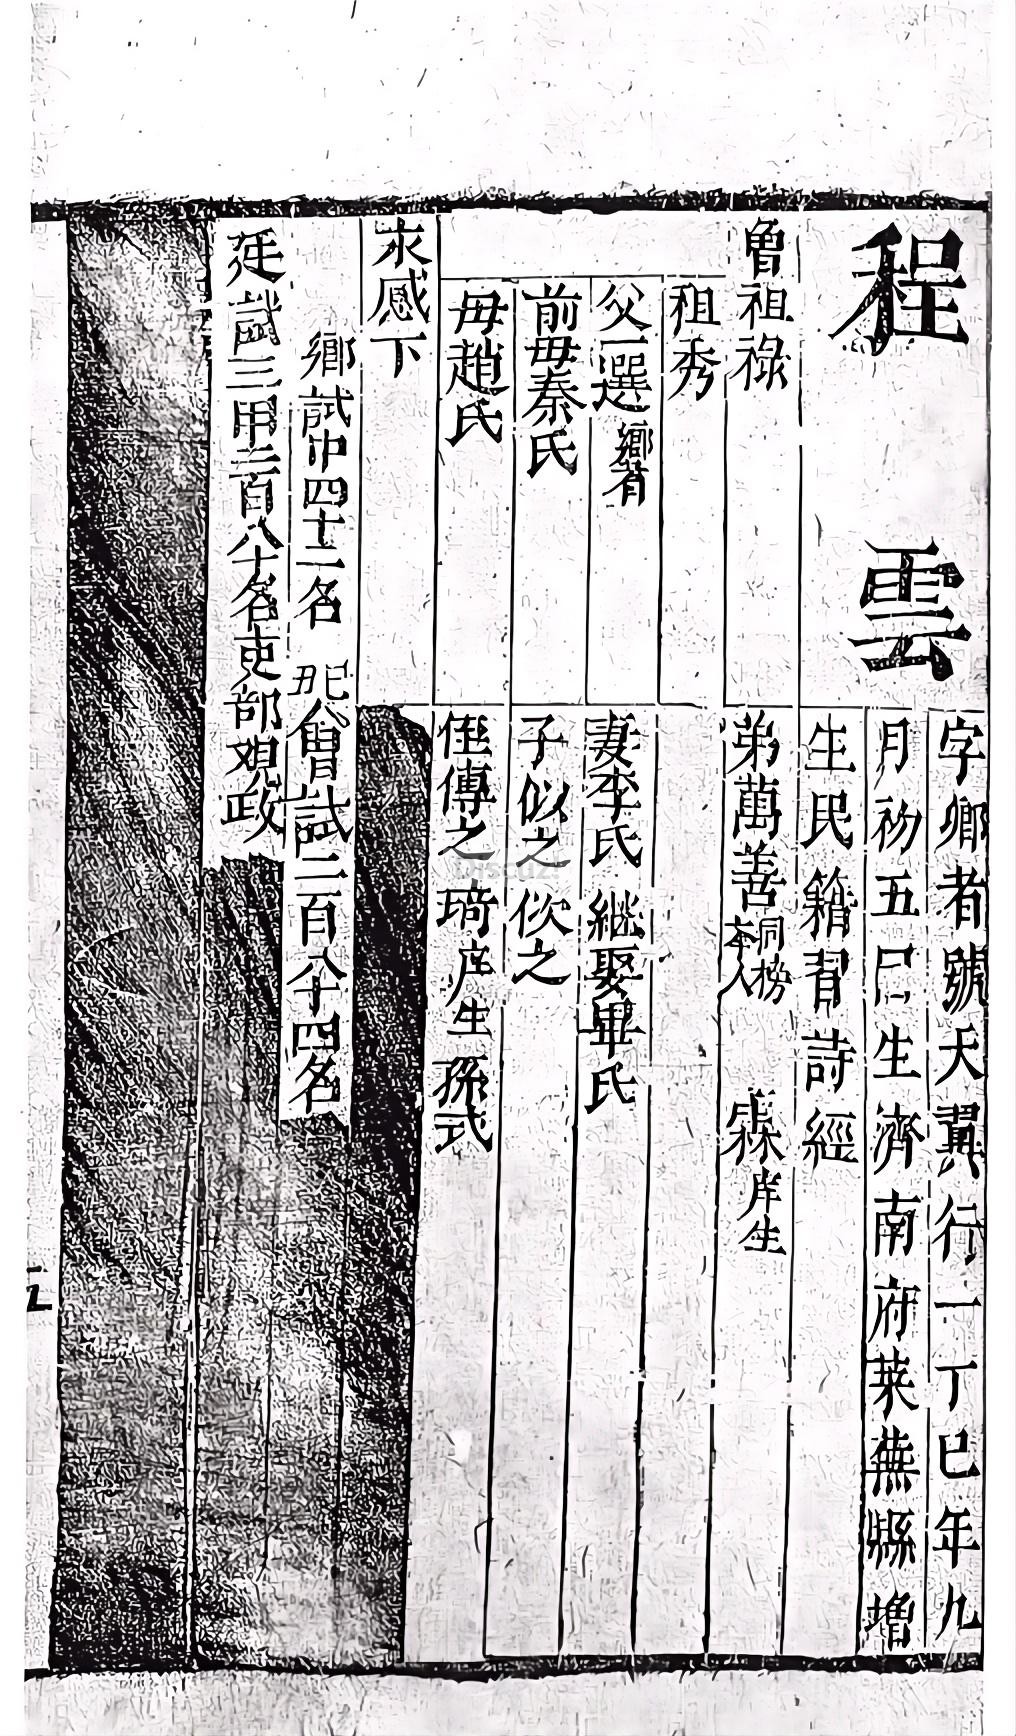 程雲
字卿者號天翼行一丁巳年九
月初五日生濟南府萊蕪縣增
生民籍習詩經
曾祖祿
祖秀
父一選鄉耆
前母秦氏
母趙氏
永感下
弟萬善同榜本人
庠生
妻李氏 繼娶畢氏
子似之 佽之
侄傳之 琦庠生 孫式
鄉試中四十二名 會試二百八十四名
廷試三甲二百八十名吏部觀政
五
Discuz!